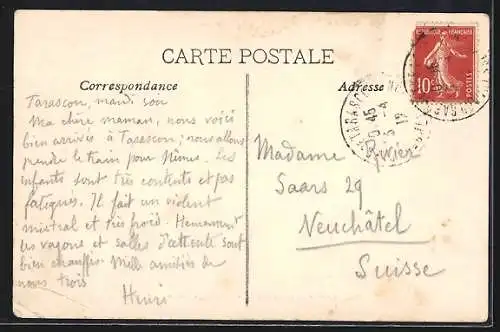 CARTE POSTALE
Correspondance
Adresse
RÉPUBLIQUE FRANÇAISE
10c
POSTES
TARASCON
Tarascon, mardi soir
Ma chère maman, nous voici
bien arrivés à Tarascon, nous allons
prendre le train pour Nîmes. Les
enfants sont très contents et pas
fatigués. Il fait un violent
mistral et très froid. Heureusement
les vagons et salles d'attente sont
bien chauffés. Mille amitiés de
nous trois
Henri
Madame Rivier
Saars 29
Neuchâtel
Suisse